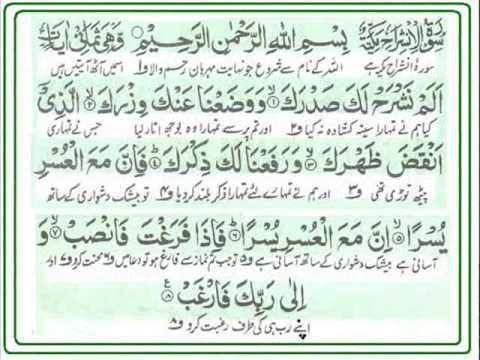 سُوْرَةُ الْاِنْشِرَاحِ مَكِّيَّةٌ بِسْمِ اللهِ الرَّحْمٰنِ الرَّحِيْمِ وَهِيَ ثَمَانِيْ اٰيَاتٍ
سورۂ انشراح مکیہ ہے اللہ کے نام سے شروع جو نہایت مہربان رحم والا ف۱ اسمیں آٹھ آیتیں ہیں
اَلَمْ نَشْرَحْ لَكَ صَدْرَكَ ۙ۱ وَوَضَعْنَا عَنْكَ وِزْرَكَ ۙ۲ الَّذِيْۤ
کیا ہم نے تمہارا سینہ کشادہ نہ کیا ف۲ اور تم پر سے تمہارا وہ بوجھ اتار لیا جس نے تمہاری
اَنْقَضَ ظَهْرَكَ ۙ۳ وَرَفَعْنَا لَكَ ذِكْرَكَ ؕ۴ فَاِنَّ مَعَ الْعُسْرِ
پیٹھ توڑی تھی ف۳ اور ہم نے تمہارے لئے تمہارا ذکر بلند کردیا ف۴ تو بیشک دشواری کے ساتھ
يُسْرًا ۙ۵ اِنَّ مَعَ الْعُسْرِ يُسْرًا ؕ۶ فَاِذَا فَرَغْتَ فَانْصَبْ ۙ۷ وَ
آسانی ہے بیشک دشواری کے ساتھ آسانی ہے ف۵ تو جب تم نماز سے فارغ ہو تو دعا میں ف۶ محنت کرو ف۷ اور
اِلٰى رَبِّكَ فَارْغَبْ ۸ ع
اپنے رب ہی کی طرف رغبت کرو ف۸